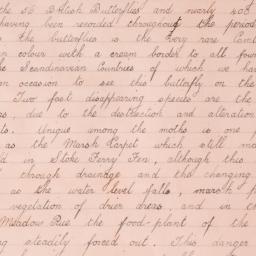 the 56 British Butterflies and nearly 408
having been recorded throughout the period
the butterflies is the very rare Cam
in colour with a cream border to all four
the Scandinavian Countries of which we ha
an occasion to see this butterfly on the
Two fast disappearing species are the
, due to the destruction and alteration
Unique among the moths is one
as the Marsh Carpet which still ma
in Stoke Ferry Fen, although this
through drainage and the changing
as the water level falls, marsh p
vegetation of drier areas, and in th
Meadow Rue the food-plant of the
steadily forced out. This danger